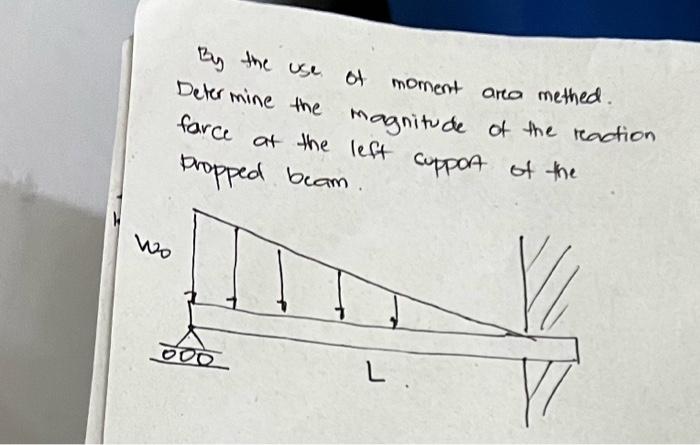 By the use of moment area methed.
Determine the magnitude of the reaction
farce at the left support of the
propped beam.
Wo
L.